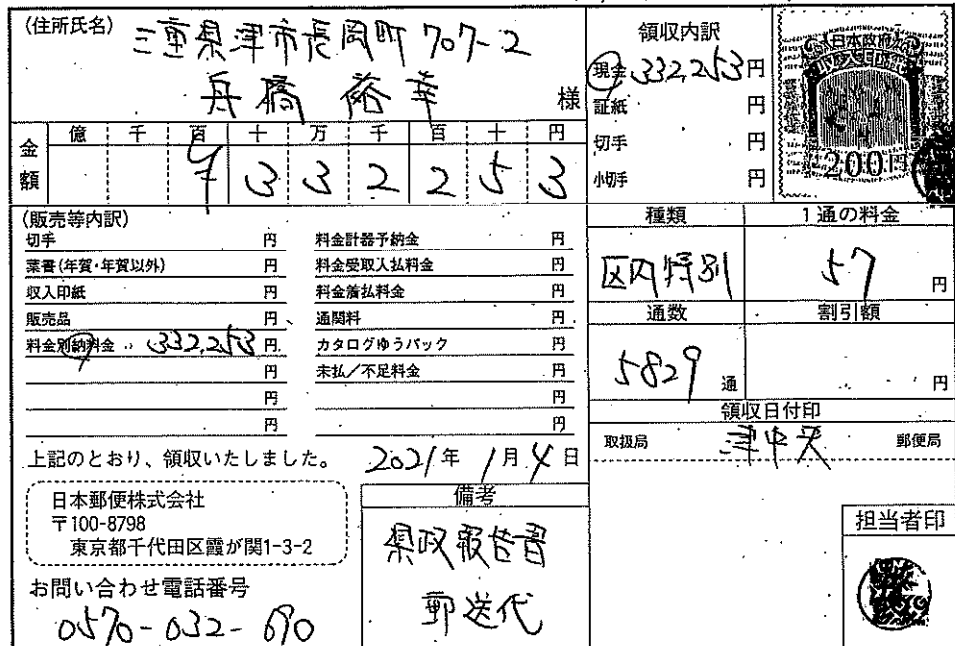 (住所氏名)
三重県津市長岡町707-2
舟橋 裕幸 様
金額
億 千 百 十 万 千 百 十 円
¥ 3 3 2 2 5 3
領収内訳
現金 ¥332,253円
証紙 円
切手 円
小切手 円
日本政府
収入印紙
200円
(販売等内訳)
切手 円
葉書(年賀・年賀以外) 円
収入印紙 円
販売品 円
料金別納料金 ¥332,253円
円
円
円
料金計器予納金 円
料金受取人払料金 円
料金着払料金 円
通関料 円
カタログゆうパック 円
未払/不足料金 円
円
円
種類
区内特別
1通の料金
57円
通数
5829通
割引額
円
領収日付印
取扱局 津中央 郵便局
上記のとおり、領収いたしました。 2021年 1月 4日
日本郵便株式会社
〒100-8798
東京都千代田区霞が関1-3-2
お問い合わせ電話番号
0570-032-690
備考
県政報告書
郵送代
担当者印